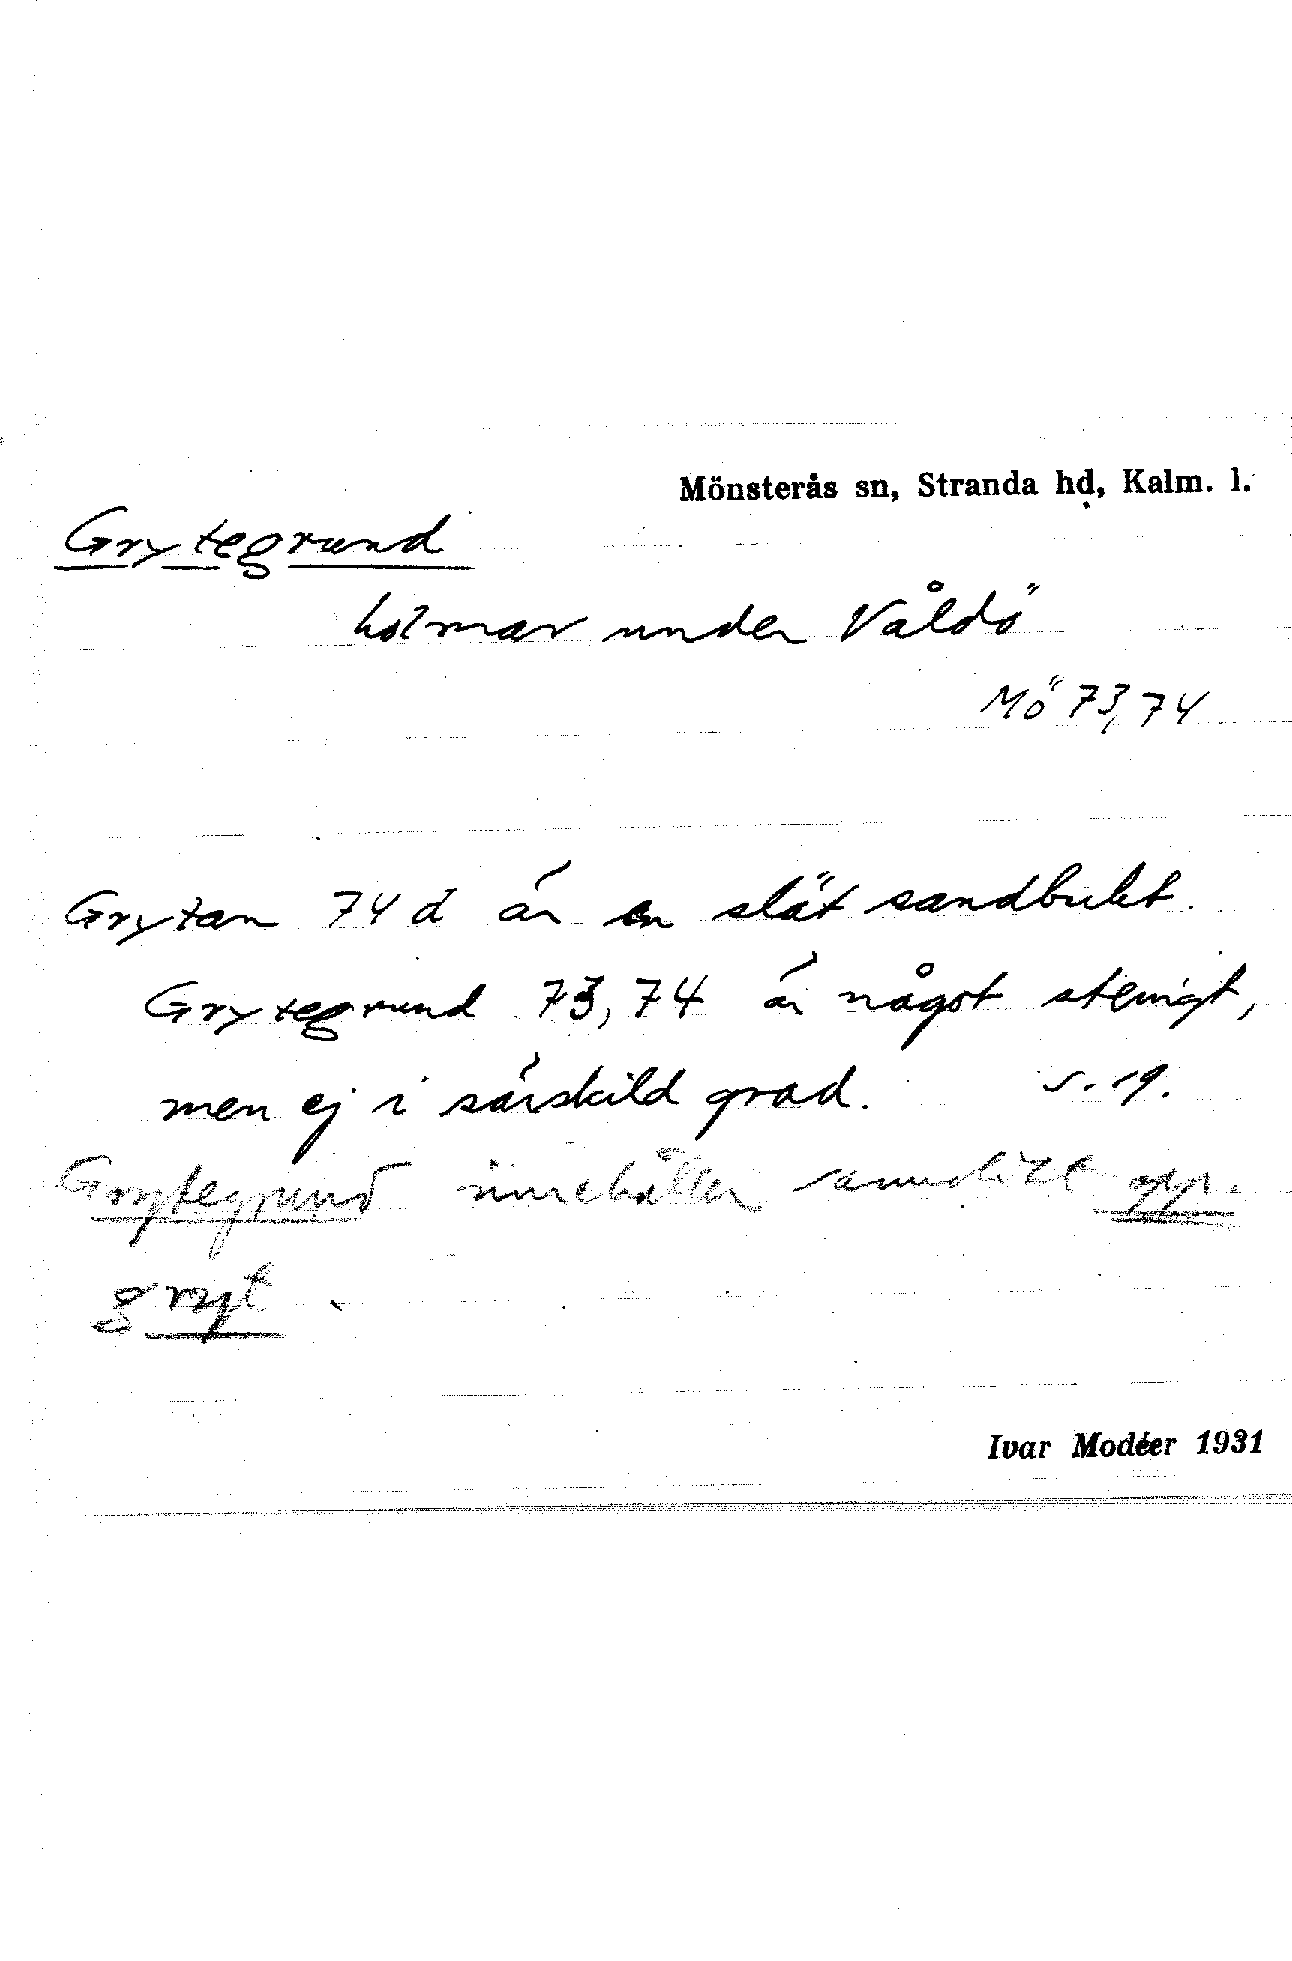 Mönsterås sn, Stranda hd, Kalm. l.
Grytegrund
holmar under Våldö
Mö 73, 74
Grytan 74 d är en slät sandbukt.
Grytegrund 73, 74 är något stenigt,
men ej i särskild grad. s. 19.
Grytegrund innehåller sannolikt app.
gryt.
Ivar Modéer 1931